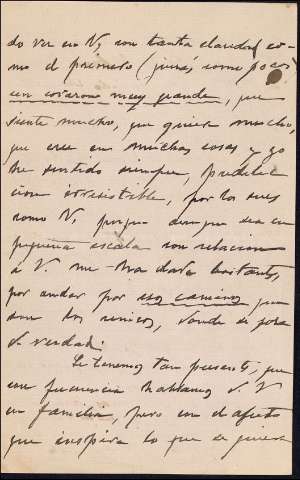 do ver en V, con tanta claridad co-
mo el primero (quizás como pocos)
un corazón muy grande, que
siente mucho, que quiere mucho,
que cree en muchas cosas y yo
he sentido siempre, predilec
ción irresistible, por los seres
como V, porque aunque sea en
pequeña escala con relación
á V. me ha dado bastante,
por andar por esos caminos que
son los únicos, donde se goza
de verdad.
Le tenemos tan presente, que
con frecuencia hablamos de V
en familia, pero con el afecto
que inspira lo que se quiere